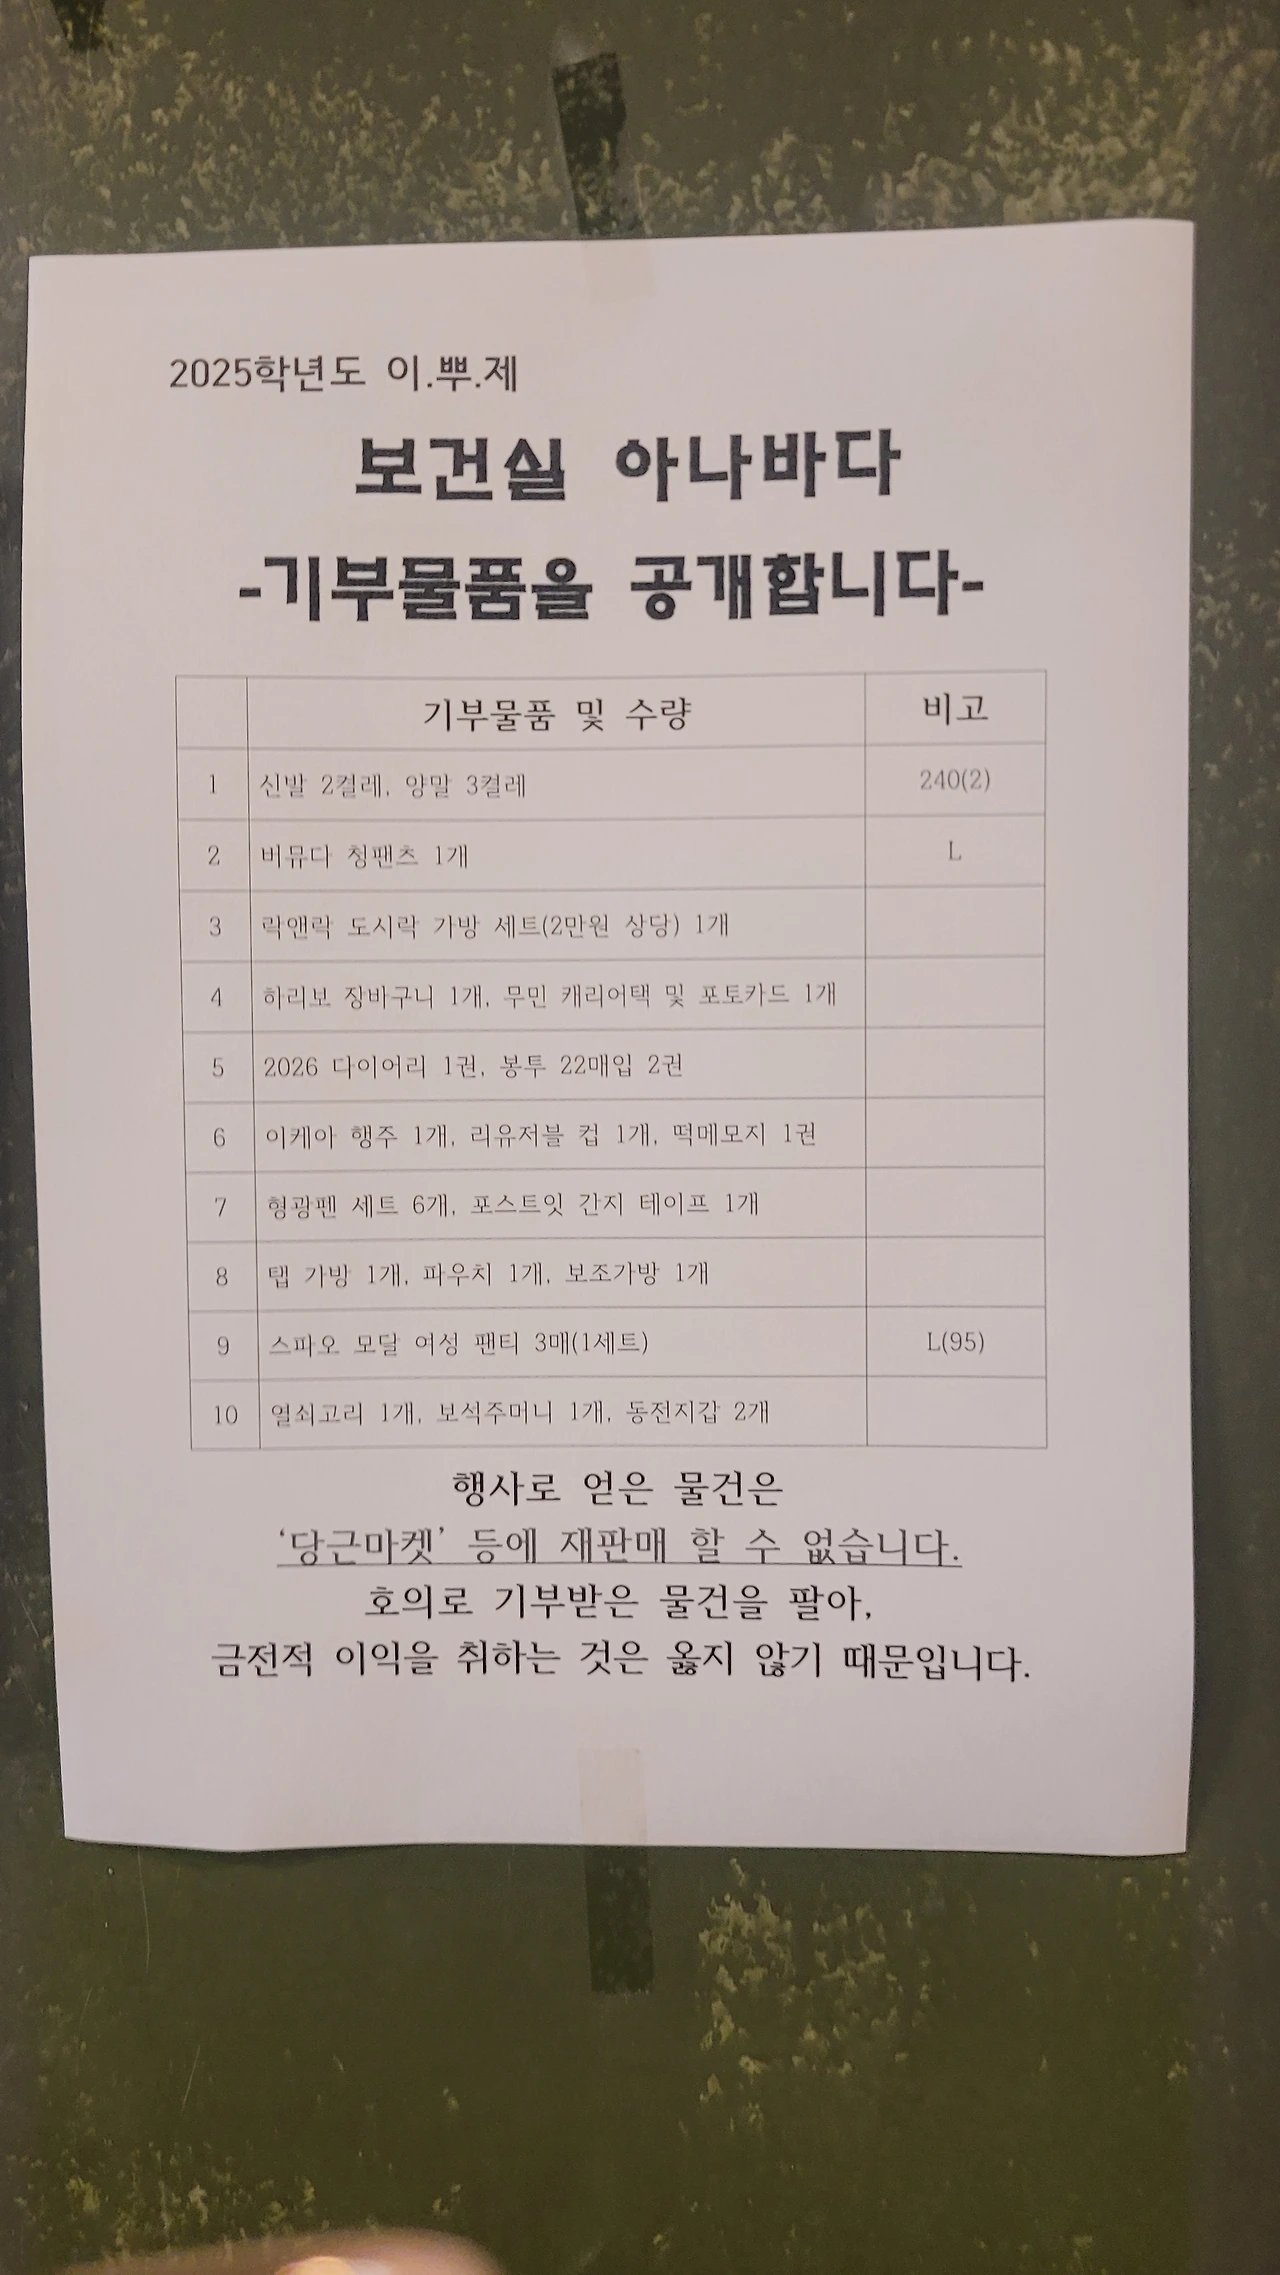 2025학년도 이.뿌.제
보건실 아나바다
-기부물품을 공개합니다-
기부물품 및 수량 비고
1 신발 2켤레, 양말 3켤레 240(2)
2 버뮤다 청팬츠 1개 L
3 락앤락 도시락 가방 세트(2만원 상당) 1개
4 하리보 장바구니 1개, 무민 캐리어택 및 포토카드 1개
5 2026 다이어리 1권, 봉투 22매입 2권
6 이케아 행주 1개, 리유저블 컵 1개, 떡메모지 1권
7 형광펜 세트 6개, 포스트잇 간지 테이프 1개
8 탭 가방 1개, 파우치 1개, 보조가방 1개
9 스파오 모달 여성 팬티 3매(1세트) L(95)
10 열쇠고리 1개, 보석주머니 1개, 동전지갑 2개
행사로 얻은 물건은
‘당근마켓’ 등에 재판매 할 수 없습니다.
호의로 기부받은 물건을 팔아,
금전적 이익을 취하는 것은 옳지 않기 때문입니다.